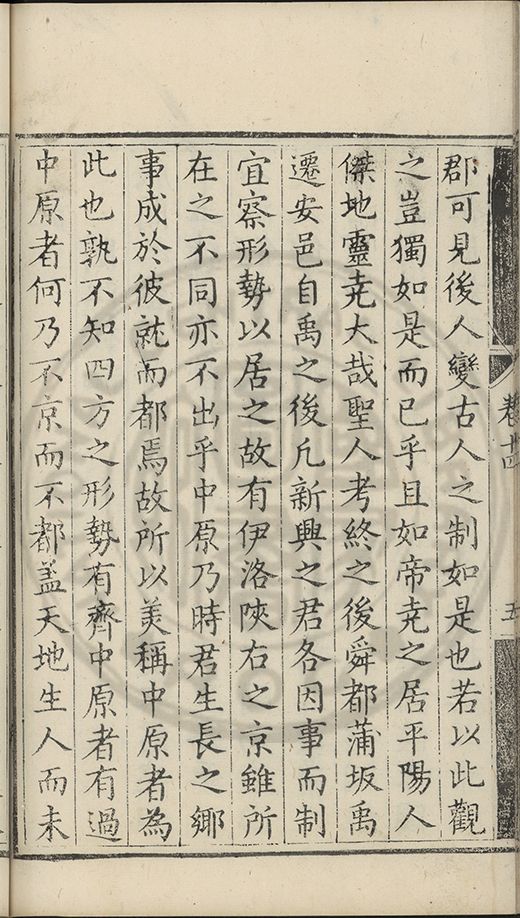 郡可見後人變古人之制如是也若以此觀
之豈獨如是而已乎且如帝尭之居平陽人
傑地靈尭大哉聖人考終之後舜都蒲坂禹
遷安邑自禹之後凢新興之君各因事而制
宜察形勢以居之故有伊洛陜右之京雖所
在之不同亦不出乎中原乃時君生長之鄉
事成於彼就而都焉故所以美稱中原者為
此也孰不知四方之形勢有齊中原者有過
中原者何乃不京而不都盖天地生人而未